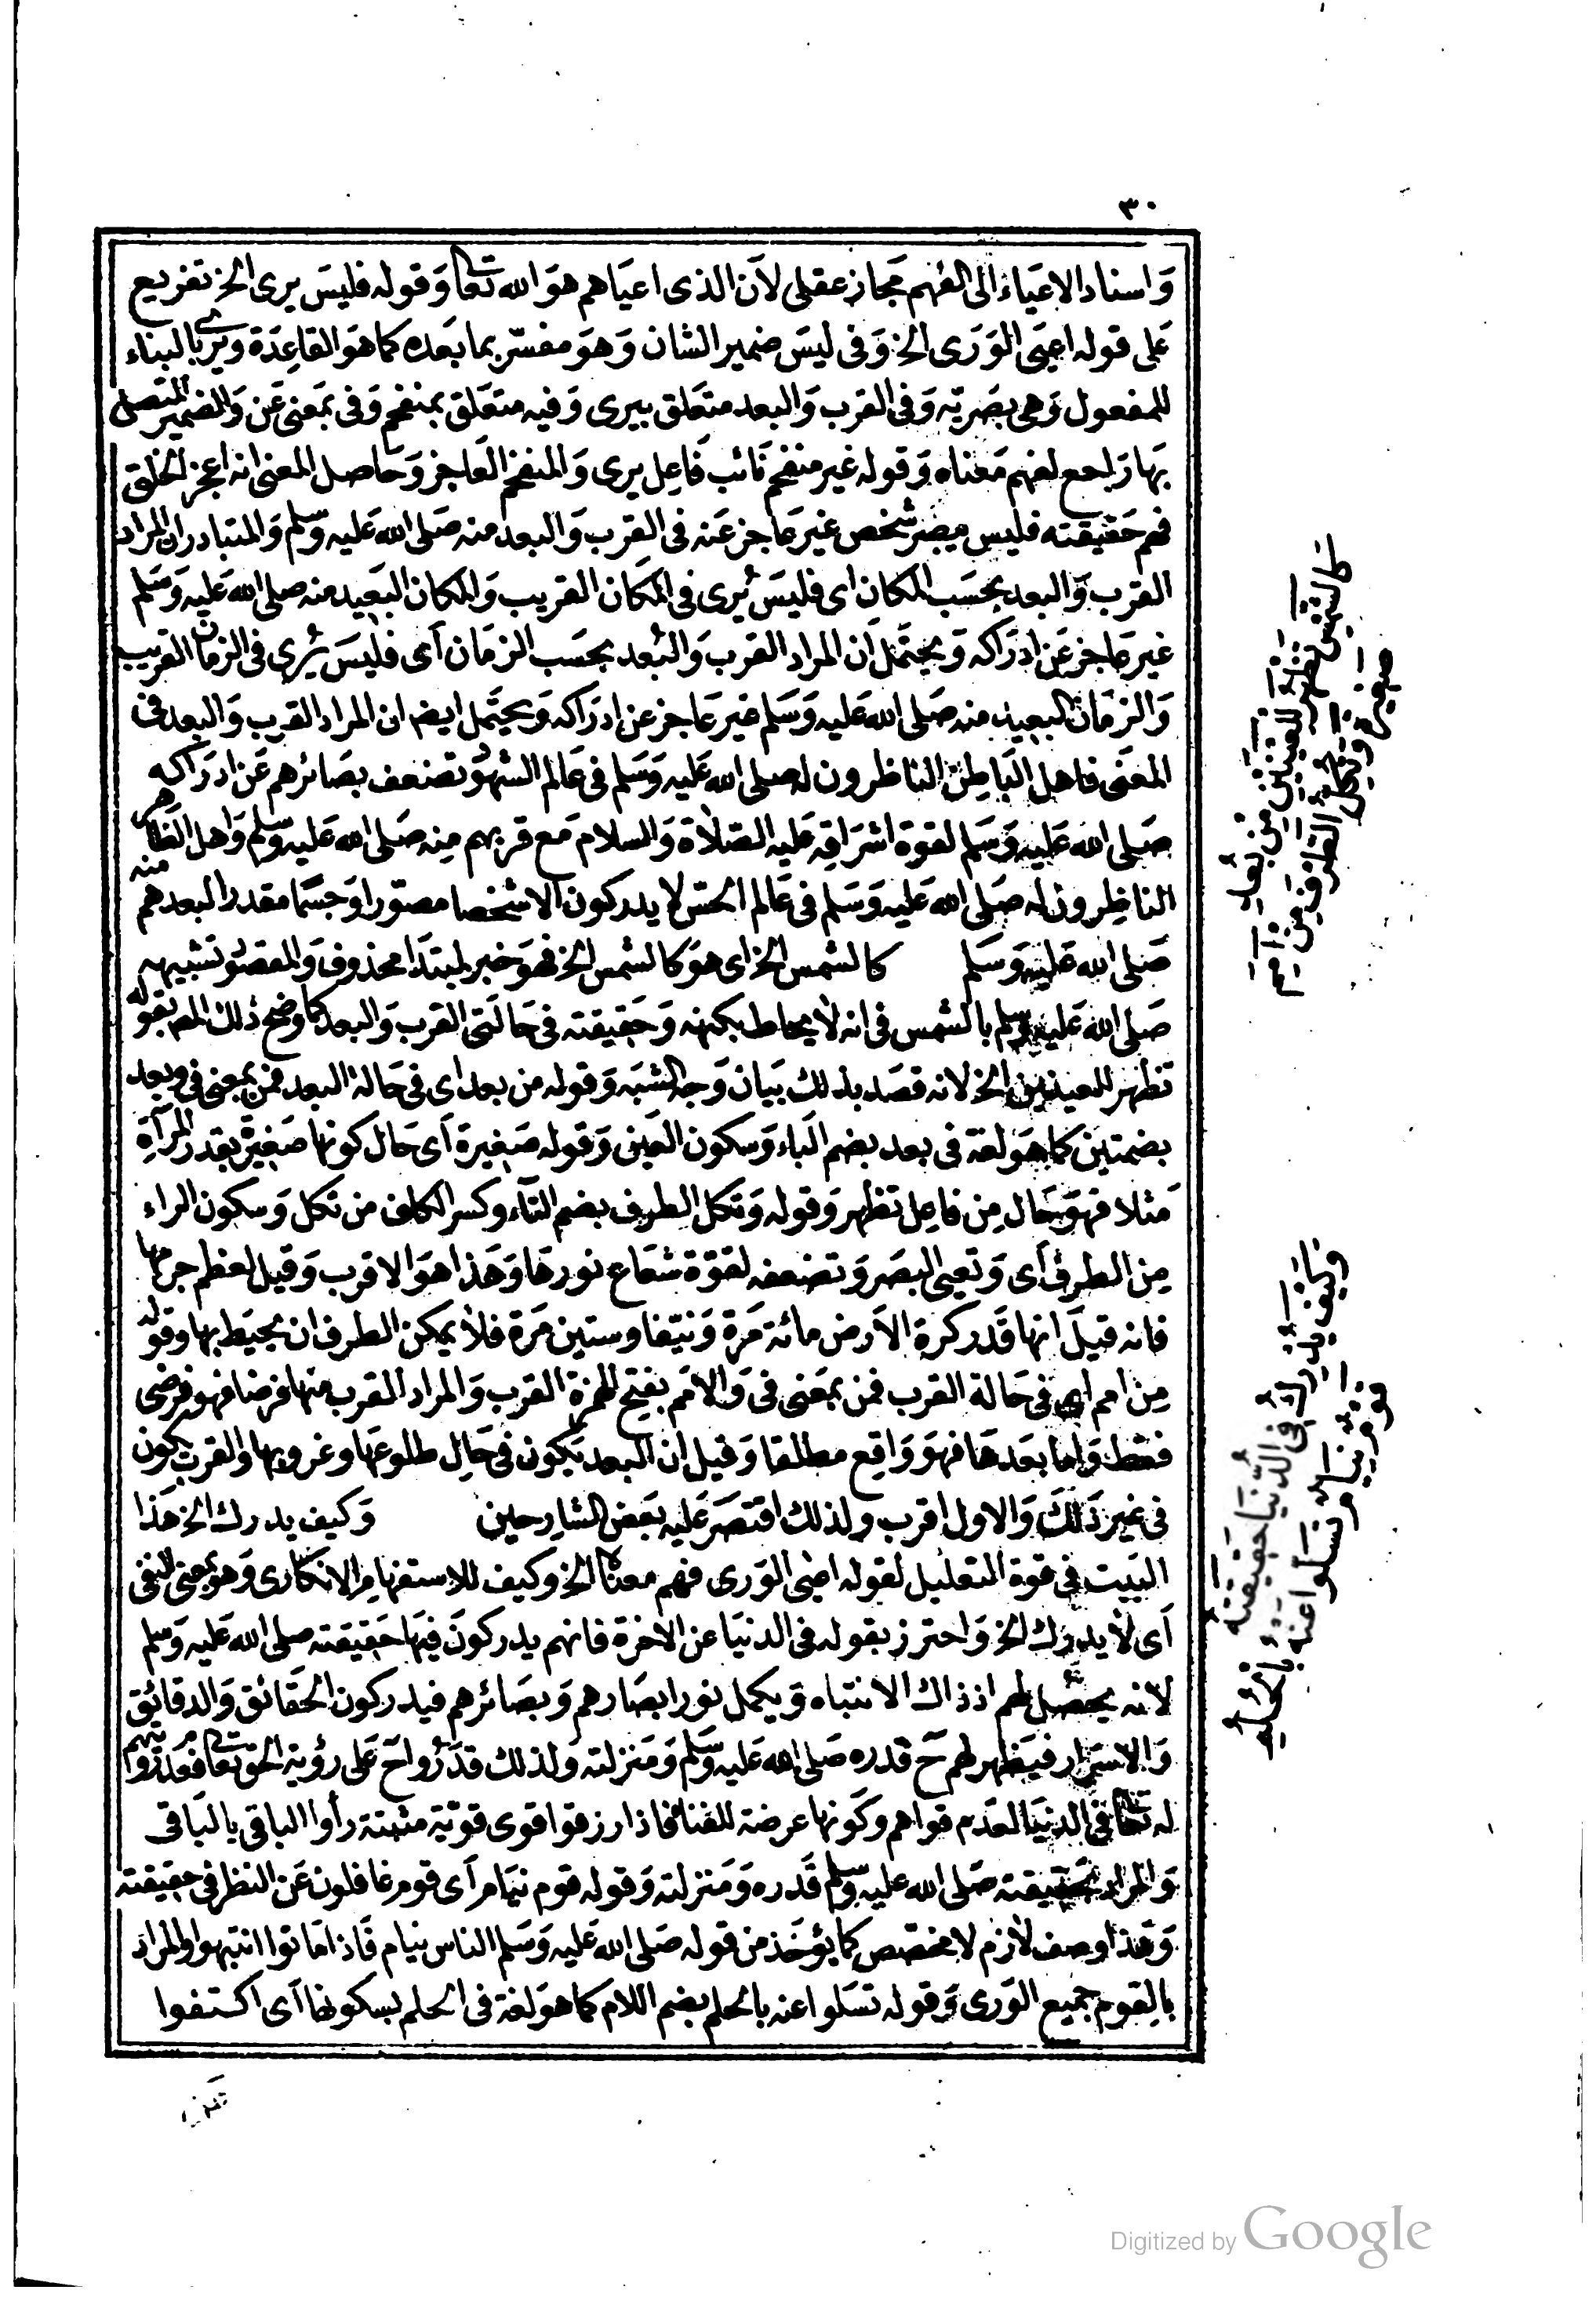 ٣٠
وَاسناد الاعيَاء الى الفهم مَجاز عقلى لأن الذى اعيَاهم هوَ الله تعَا وَقوله فليسَ يرى الخ تفريع
عَلى قوله اعيَى الوَرَى الخ وَفى ليسَ ضمير الشان وَهوَ مفسّر بما بَعده كما هوَ القاعِدَة ويرى بالبناء
للمفعول وَهى بصَريّه وَفى القرب وَالبعد متعَلق بيرى وَفيه متعَلق بمنفحم وَفى بمَعنى عَن وَالضمير المتصل
بها رَاجع لفهم مَعناه وَقوله غير منفحم نَائب فَاعِل يرى وَالمنفحم العَاجز وَحَاصل المعنى انه اعجز الخلق
فهم حَقيقته فليس يبصر شخص غير عَاجز عَنه فى القرب وَالبعد منه صَلى الله عَليه وسلم وَالمتبادر ان المراد
القرب وَالبعد بحسَب المكان اى فليسَ يُرى فى المكان القريب وَالمكان البَعيد منه صلى الله عَليه وَسَلم
غير عَاجز عَن ادرَاكه وَيحتَمل ان المراد القرب وَالبُعد بحسَب الزمَان آى فليسَ يُرى فى الزمان القريب
وَالزمَان البعيد منه صَلى الله عَليه وَسَلم غير عَاجز عن ادرَاكه وَيحتَمل ايضا ان المراد القرب وَالبعد فى
المعنَى فاهل البَاطِن الناظرون له صلى الله عَليه وَسَلم فى عَالم الشهوُد تضعف بصَائرهم عَن ادرَاكه
صَلى الله عَليه وَسَلم لقوة اشرَاقه عَليه الصّلاة وَالسلام مَع قربهم مِنه صَلى الله عَليه وسلم وَاهل الظاهر
الناظِرون له صَلى الله عَليه وَسَلم فى عَالم الحسّ لا يدركون الا شخصا مصوّرا وَجسمًا مقدرا لبعدهم منه
صَلى الله عَليه وَسَلم كالشمس الخ اى هوَ كالشمس الخ فهوَ خبر لمبتدَا محذوف وَالمقصوُد تشبيهه
صَلى الله عَليه وسلم بالشمس فى انه لا يحاط بكنهه وَحَقيقته فى حَالتى القرب وَالبعد كما وضح ذلك المص بقوله
تظهر للعينين الخ لانه قصَد بذلك بَيان وَجه الشبَه وَقوله من بعد اى فى حَالة البعد فمن بمعنى فى وبعد
بضمتين كما هوَ لغة فى بعد بضم البَاء وَسكون العَين وَقوله صَغيرة آى حَال كونها صَغيرة بقدر المرآة
مَثلا فهوَ حَال مِن فاعِل تظهر وَقوله وَتكل الطرف بضم التآء وكسر الكاف من تكل وَسكون الراء
مِن الطرف آى وَتعيى البصَر وَتضعفه لقوّة شعَاع نورهَا وَهَذا هوَ الاقرب وَقيل لعظم جرمها
فانه قيلَ انها قَدر كرة الاَرض مائة مَرة وَنيّفا وستين مَرة فلا يمكن الطرف ان يحيَط بها وقوله
مِن امم اى فى حَالة القرب فمن بمَعنى فى وَالامَم بفتح الهمزة القرب وَالمراد القرب منها فرضا فهو فرضى
فقط وَاما بعَدهَا فهوَ وَاقِع مطلقا وَقيل ان البعد يَكون فى حَال طلوعها وغروبها والقرب يكون
فى غير ذَلك وَالاول اقرب ولذلك اقتصَر عَليه بَعض الشارحين وَكيف يدرك الخ هَذا
البَيت فى قوة التعليل لقوله اعيى الوَرى فهم معناه الخ وكيف للاستفهام الانكارى وَهو بمعنى النفى
آى لا يدرك الخ وَاحترز بقوله فى الدنيَا عن الاخرة فانهم يدركونَ فيهَا حَقيقته صلى الله عَليه وَسَلم
لانه يحصُل لهم اذ ذاك الانتباه وَيكمل نور ابصَارهم وَبصَائرهم فيدركون الحَقائق وَالدقائق
وَالاسرَار فيَظهر لهم حَ قدره صَلى الله عَليه وسَلم وَمَنزلته وَلذلك قدَرُوا حَ عَلى رؤية الحَق تعَا فعَدَم رؤيتهم
له تعَا فى الدنيَا لعَدم قواهم وكَونها عرضة للفنا فاذا رزقوا قوى قويّة مثبتة رأوا الباقى بالبَاقى
وَالمراد بحَقيقته صَلى الله عليه وسلم قَدره وَمَنزلته وَقوله قوم نيَام آى قوم غافلون عَن النظر فى حقيقته
وَهَذا وصف لاَزم لا مخصّص كما يؤخَذ من قوله صَلى الله عَليه وَسَلم الناس نيام فَاذا مَا توا انتبهوا والمراد
بالقوم جَميع الوَرى وَقوله تسَلوا عنه بالحلم بضم اللام كما هوَ لغة فى الحلم بسكونها آى اكتفوا
كَالشَّمْسِ تَظْهَرُ لِلْعَيْنَيْنِ مِنْ بُعُدٍ
صَغِيرَةً وَتُكِلُّ الطَّرْفَ مِنْ أَمَمِ
وَكَيْفَ يُدْرِكُ فِى الدُّنْيَا حَقِيقَتَهُ
قَوْمٌ نِيَامٌ تَسَلَّوْا عَنْهُ بِالْحُلُمِ
Digitized by Google